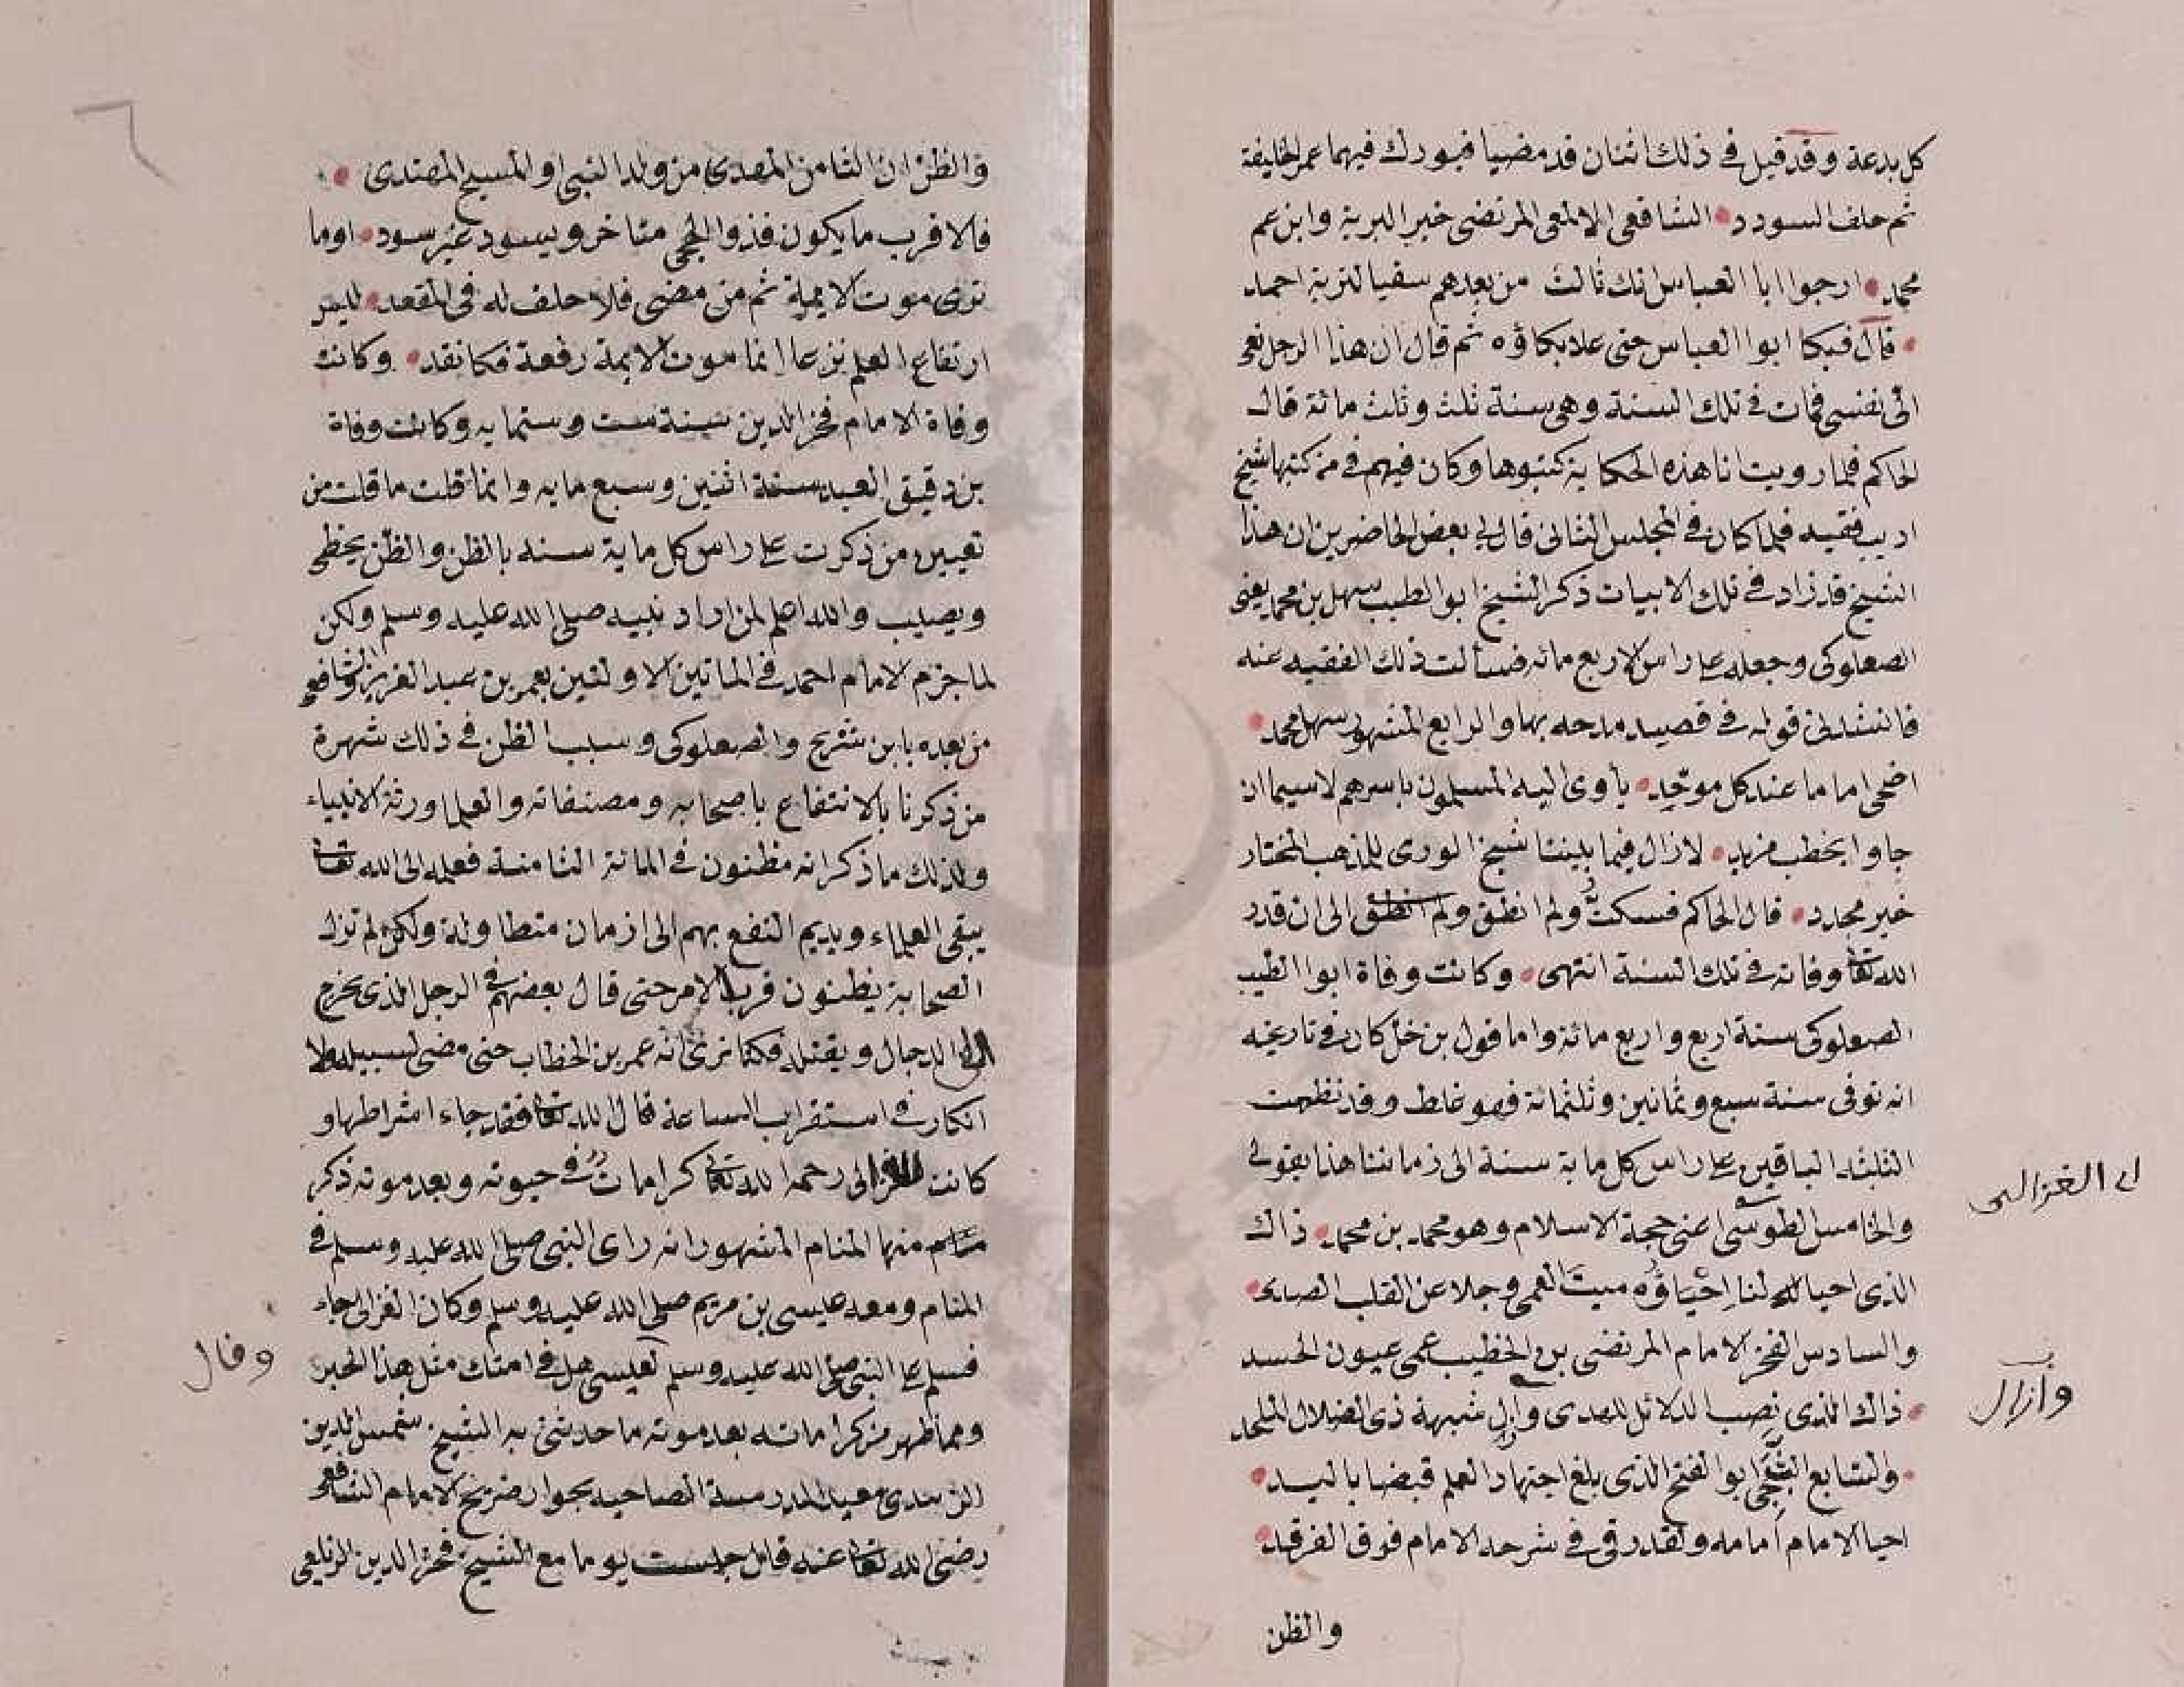 كل بدعة وقد قيل في ذلك اثنان قد مضيا فبورك فيهما عمر الخليفة
ثم حلف السودد الشافعي الالمعي المرتضى خير البرية وابن عم
محمد ارجوا ابا العباس انك ثالث من بعدهم سقيا لتربة احمد
قال فبكا ابوا العباس حتى علا بكاؤه ثم قال ان هذا الرجل نعى
الى نفسي فمات في تلك السنة وهي سنة ثلث وثلث مائة قال
الحاكم فلما رويت انا هذه الحكاية كتبوها وكان فيهم في من كتبها شيخ
اديب فقيه فلما كان في المجلس الثاني قال لي بعض الحاضرين ان هذا
الشيخ قد زاد في تلك الابيات ذكر الشيخ ابو الطيب سهل بن محمد يعني
الصعلوكي وجعله على راس الاربع مائه فسألت ذلك الفقيه عنه
فانشدني قوله في قصيده مدحه بها والرابع المشهور سهل محمد
اضحى اماما عند كل موحّد ياوى اليه المسلمون باسرهم لاسيما ان
جاوا بخطب مزيد لازال فيما بيننا شيخ الورى للمذهب المختار
خير مجدد قال الحاكم فسكتُّ ولم انطق ولم انطق الى ان قدر
الله تعا وفاته في تلك السنة انتهى وكانت وفاة ابوا الطيب
الصعلوكي سنة اربع واربع مائة واما قول بن خلكان في تاريخه
انه توفى سنة سبع وثمانين وثلثمائة فهو غلط وقد نظمت
الثلثه الباقين على راس كل ماية سنة الى زماننا هذا بقولي
والخامس الطوسي اعني حجة الاسلام وهو محمد بن محمد ذاك
اى الغزالى
الذي احيا لنا احياؤه ميت العمى وجلا عن القلب الصدى
والسادس الفخر الامام المرتضى بن الخطيب عمى عيون الحسد
ذاك الذي نصب الدلائل للهدى وازال شبهة ذي الضلال الملحد
وأزال
والسابع التقي ابوا الفتح الذي بلغ اجتهاد العلم قبضا باليد
احيا الامام امامه ولقد رقى في شرحه الامام فوق الفرقد
والظن
٦
والظن ان الثامن المهدي من ولد النبي او المسيح المهتدى
فالاقرب ما يكون فذوا الحجى متاخر ويسود غير سود اوما
ترى موت الايمة ثم من مضى فلا حلف له في المقعد ليس
ارتفاع العلم نزعا انما موت الايمة رفعة فكانقد وكانت
وفاة الامام فخر الدين سنة ست وستمايه وكانت وفاة
بن دقيق العيد سنة اثنين وسبع مايه وانما قلت ما قلت من
تعيين من ذكرت على راس كل ماية سنه بالظن والظّن يخطى
ويصيب والله اعلم لمن اراد نبيه صلى الله عليه وسلم ولكن
لما جزم الامام احمد في الماتين الاولتين بعمر بن عبد العزيز والشافعي
من بعده بابن شريح والصعلوكي وسبب الظن في ذلك شهرة
من ذكرنا بالانتفاع باصحابه ومصنفاته والعلما ورثة الانبياء
وكذلك ما ذكرانه مظنون في المائة الثامنة فعلمه الى الله تعا
يبقى العلماء ويديم النفع بهم الى ازمان متطاولة ولكن لم تزل
الصحابة يظنون قرب الامر حتى قال بعضهم في الرجل الذي يخرج
الى الدجال ويقتله فكنا نرى انه عمر بن الخطاب حتى مضى لسبيله ولا
انكار في استقراب الساعة قال الله تعا فقد جاء اشراطها و
كانت للغزالى رحمه الله تعا كراماتٌ في حيوته وبعد موته ذكر
منها المنام المشهور انه راى النبي صلى الله عليه وسلم في
المنام ومعه عيسى بن مريم صلى الله عليه وسلم وكان الغزالى جاء
فسلم على النبي صلى الله عليه وسلم لعيسى هل في امتك مثل هذا الحبر
وقال
ومما ظهر من كراماته بعد موته ما حدثني به الشيخ شمس الدين
معيد المدرسة الصاحيه بجوار ضريح الامام الشافعى
رضى الله تعا عنه قال جلست يوما مع الشيخ فخر الدين الزيلعي